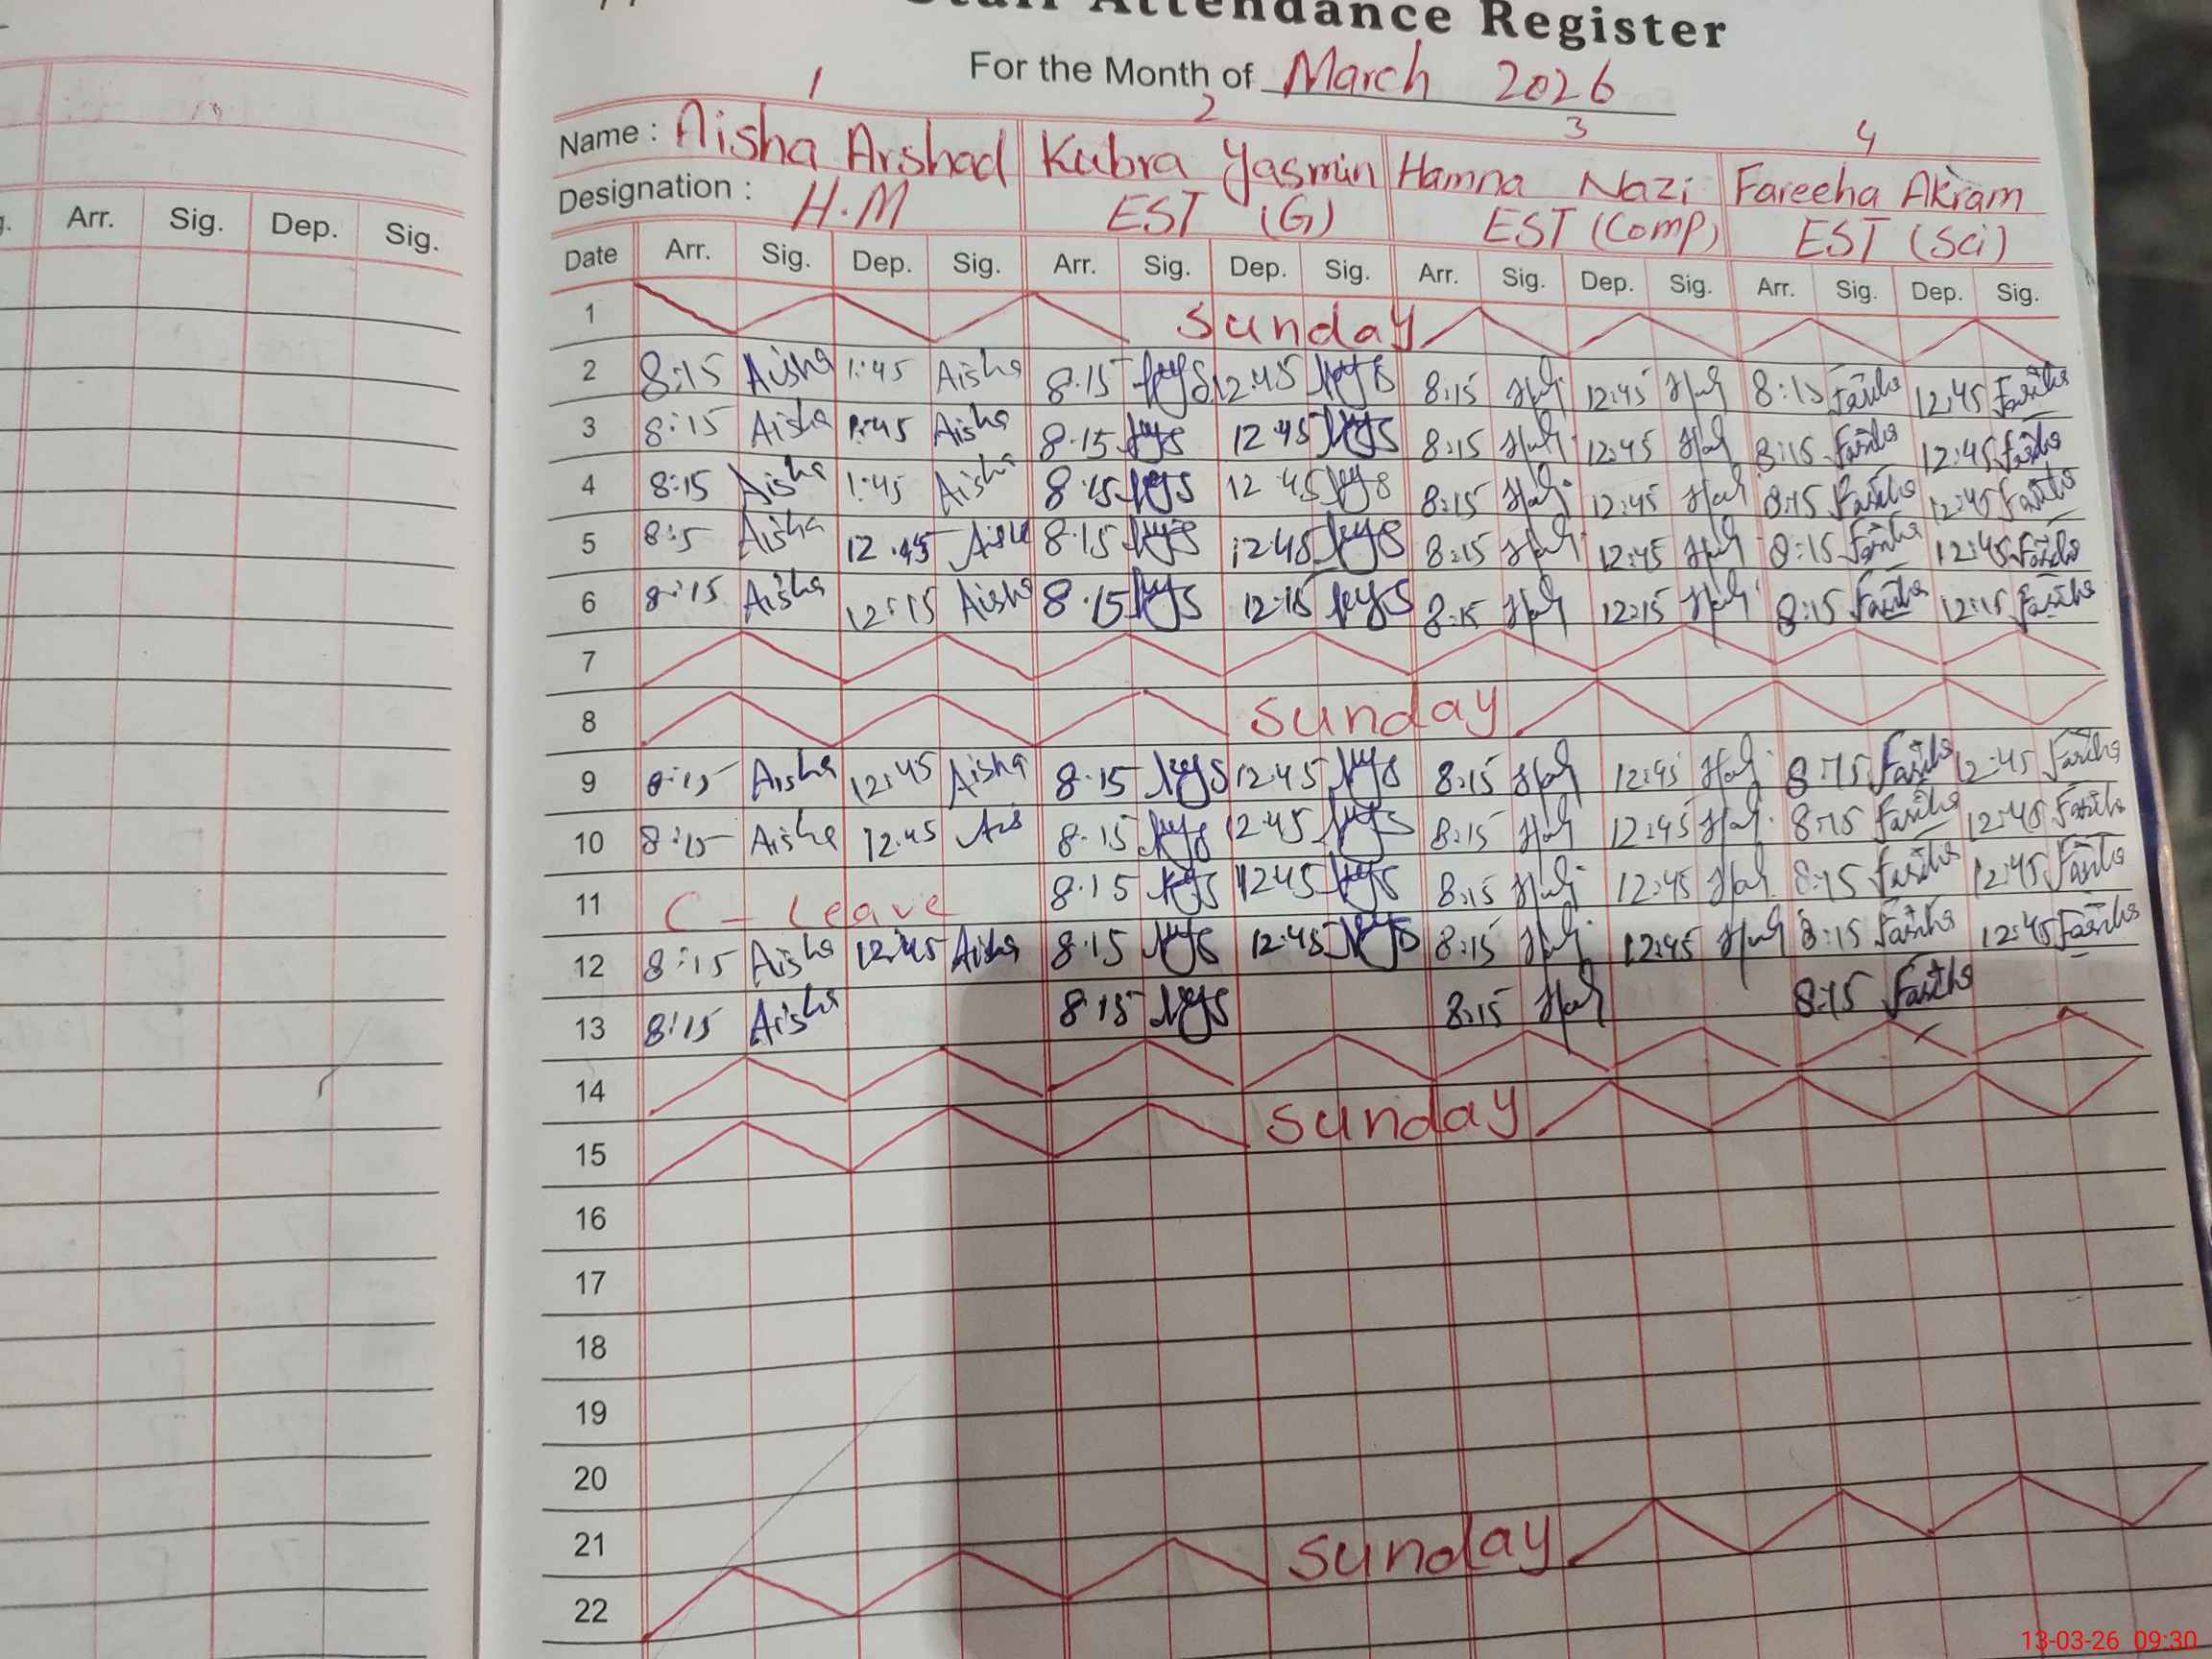 Staff Attendance Register
For the Month of March 2026
1 2 3 4
Name : Aisha Arshad Kubra Yasmin Hamna Nazi Fareeha Akram
Designation : H.M EST (G) EST (Comp) EST (Sci)
Arr. Sig. Dep. Sig.
Date Arr. Sig. Dep. Sig. Arr. Sig. Dep. Sig. Arr. Sig. Dep. Sig. Arr. Sig. Dep. Sig.
1 Sunday
2 8:15 Aisha 1:45 Aisha 8:15 12:45 8:15 12:45 8:15 Fariha 12:45 Fariha
3 8:15 Aisha 1:45 Aisha 8:15 12:45 8:15 12:45 8:15 Fariha 12:45 Fariha
4 8:15 Aisha 1:45 Aisha 8:15 12:45 8:15 12:45 8:15 Fariha 12:45 Fariha
5 8:5 Aisha 12:45 8:15 12:45 8:15 12:45 8:15 Fariha 12:45 Fariha
6 8:15 Aisha 12:15 Aisha 8:15 12:15 8:15 12:15 8:15 Fariha 12:15 Fariha
7
8 Sunday
9 8:15 Aisha 12:45 Aisha 8:15 12:45 8:15 12:45 8:15 Fariha 12:45 Fariha
10 8:15 Aisha 12:45 Ais 8:15 12:45 8:15 12:45 8:15 Fariha 12:45 Fariha
11 C - Leave 8:15 12:45 8:15 12:45 8:15 Fariha 12:45 Fariha
12 8:15 Aisha 12:45 Aisha 8:15 12:45 8:15 12:45 8:15 Fariha 12:45 Fariha
13 8:15 Aisha 8:15 8:15 8:15 Fariha
14
15 Sunday
16
17
18
19
20
21
22 Sunday
13-03-26 09:30